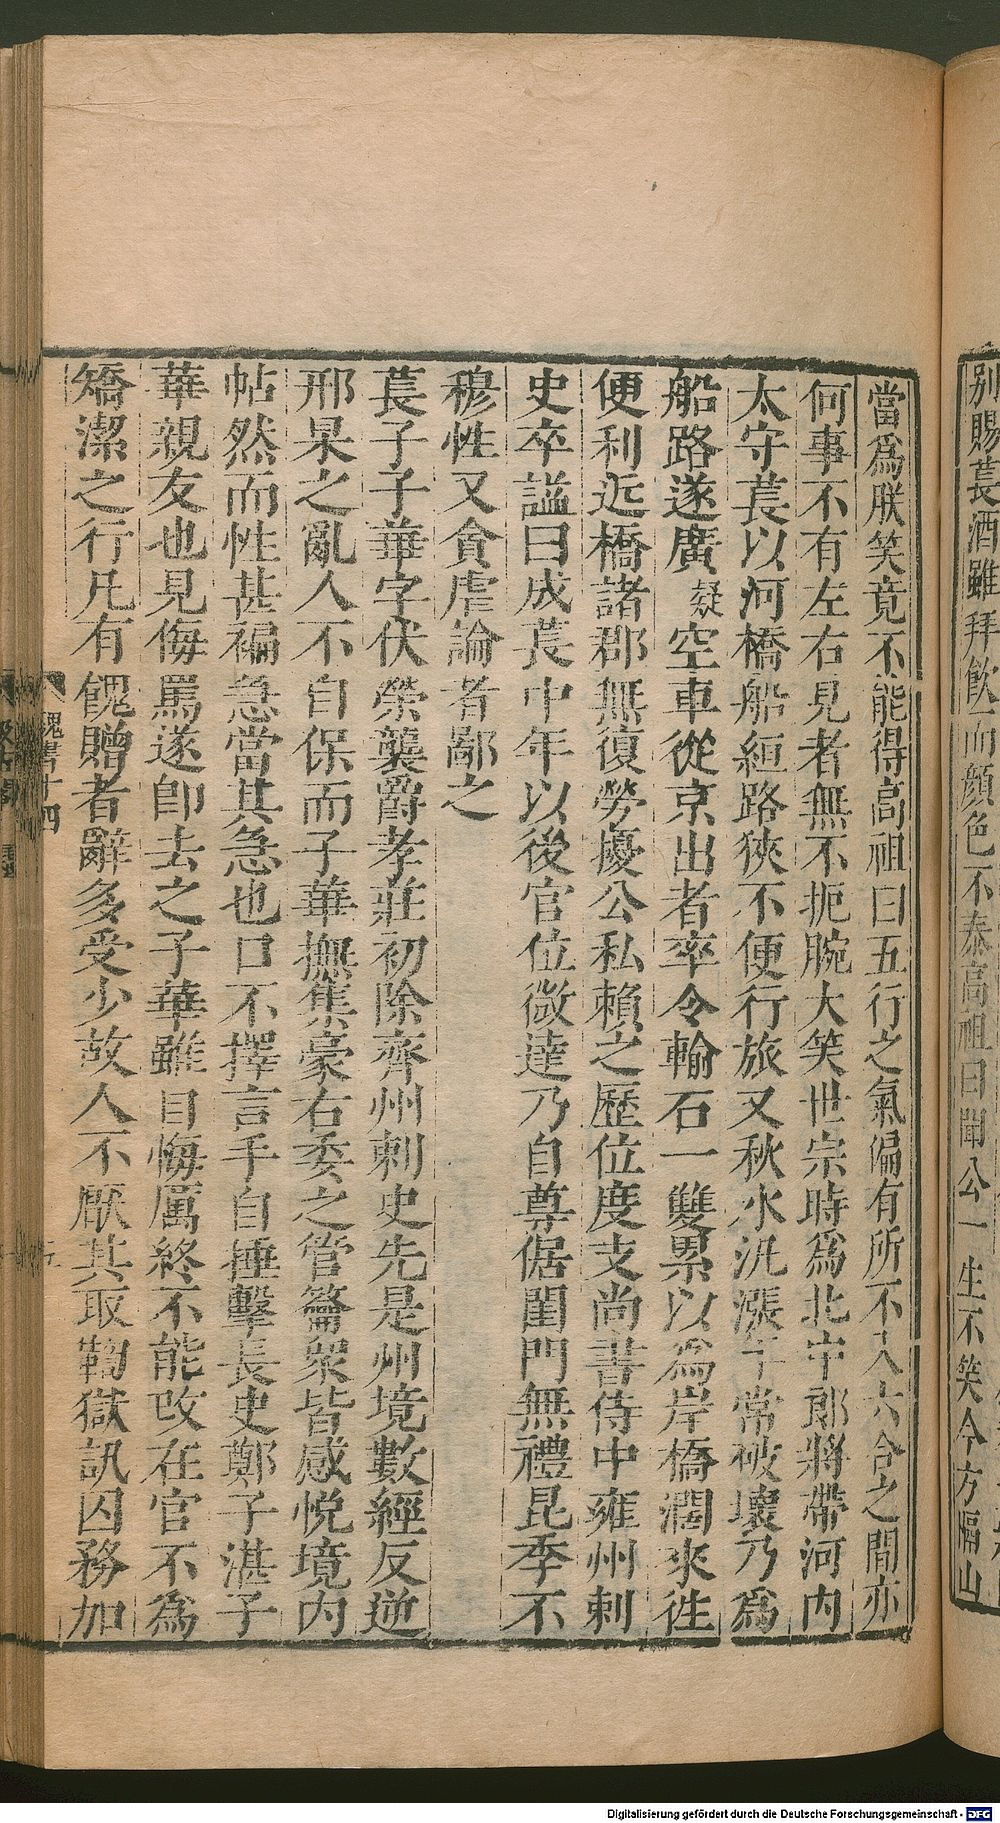 別賜萇酒雖拜飲而顏色不泰高祖曰聞公一生不笑今方隔山
當爲朕笑竟不能得高祖曰五行之氣偏有所不入六合之間亦
何事不有左右見者無不扼腕大笑世宗時爲北中郎將帶河內
太守萇以河橋船絙路狹不便行旅又秋水汎漲年常破壞乃爲
船路遂廣疑空車從京出者率令輸石一雙累以爲岸橋濶來徃
便利近橋諸郡無復勞擾公私賴之歷位度支尚書侍中雍州刺
史卒謚曰成萇中年以後官位微達乃自尊倨閨門無禮昆季不
穆性又貪虐論者鄙之
萇子子華字伏榮襲爵孝莊初除齊州刺史先是州境數經反逆
邢杲之亂人不自保而子華撫集豪右委之管籥衆皆感悅境內
帖然而性甚褊急當其急也口不擇言手自捶擊長史鄭子湛子
華親友也見侮罵遂卽去之子華雖自悔厲終不能攺在官不爲
矯潔之行凡有餽贈者辭多受少故人不厭其取鞫獄訊囚務加
魏書十四
Digitalisierung gefördert durch die Deutsche Forschungsgemeinschaft - DFG